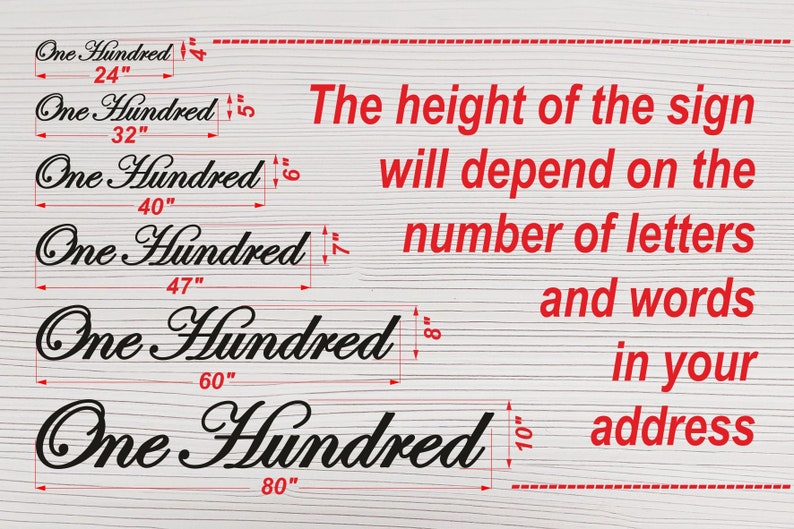 One Hundred
4"
24"
One Hundred
5"
32"
One Hundred
6"
40"
One Hundred
7"
47"
One Hundred
8"
60"
One Hundred
10"
80"
The height of the sign
will depend on the
number of letters
and words
in your
address